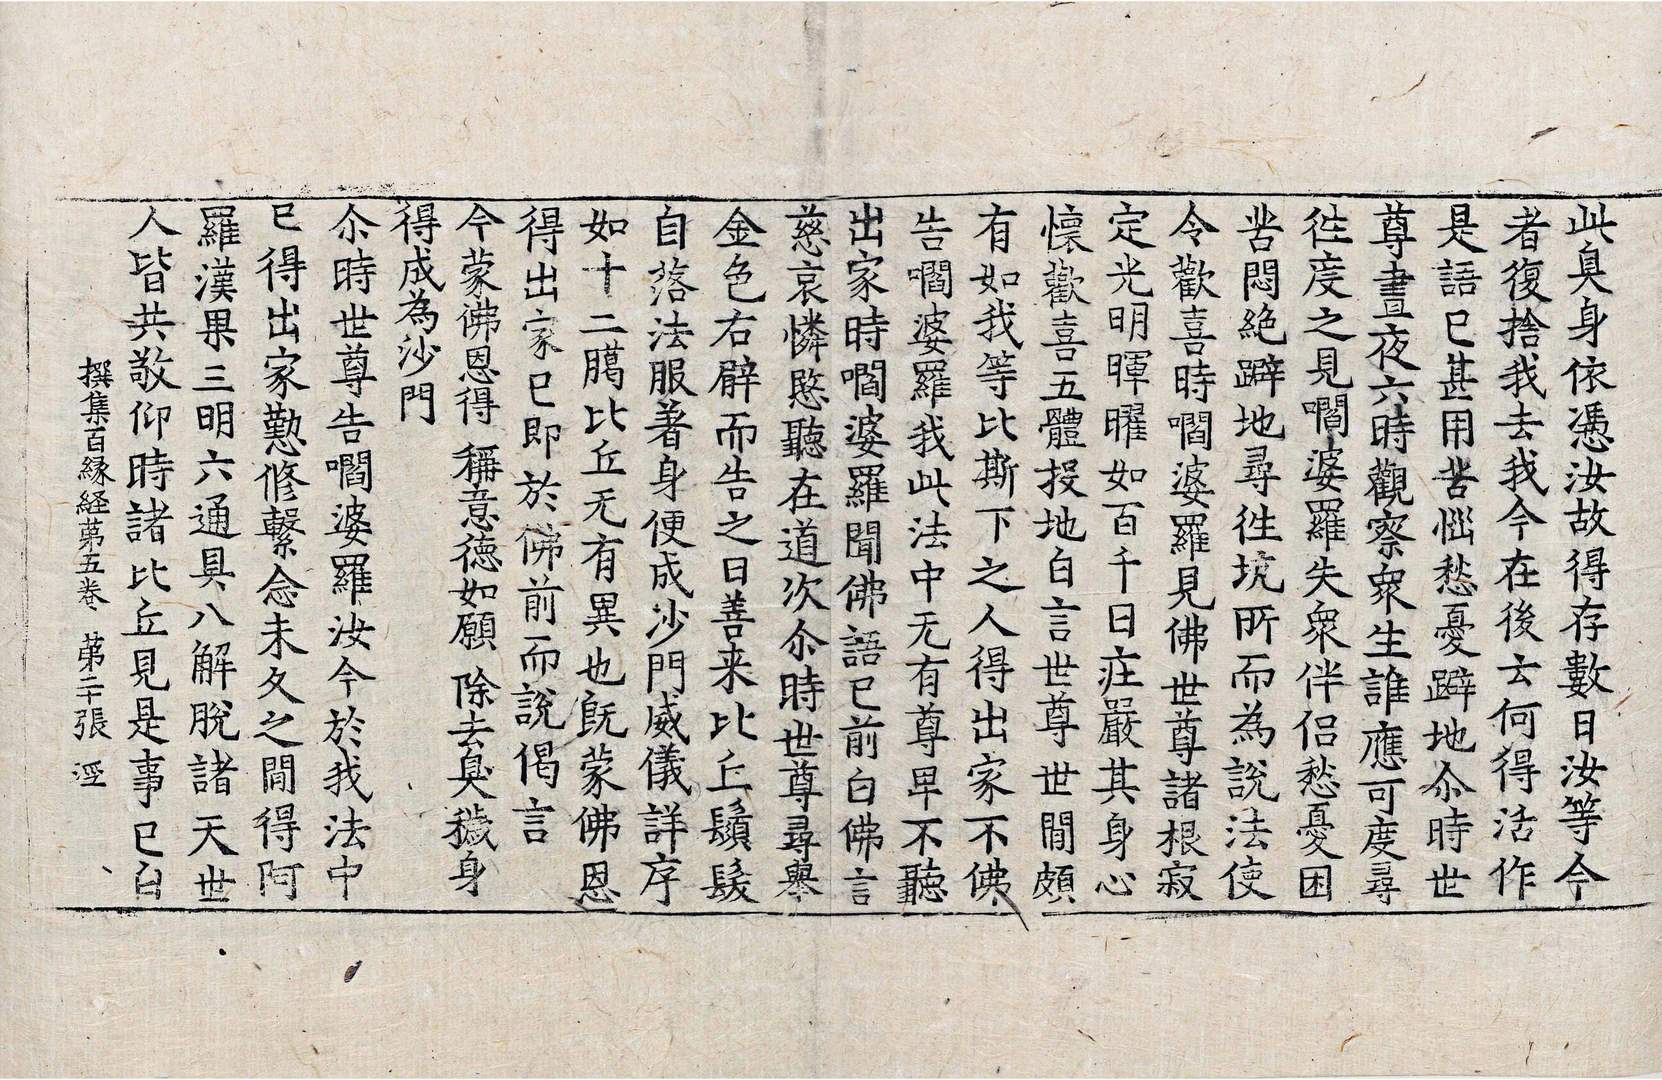 此臭身依憑汝故得存數日汝等今
者復捨我去我今在後云何得活作
是語已甚用苦惱愁憂躃地尒時世
尊晝夜六時觀察衆生誰應可度尋
徃度之見嚪婆羅失衆伴侣愁憂困
苦悶絶躃地尋徃坑所而為說法使
令歡喜時嚪婆羅見佛世尊諸根寂
定光明暉曜如百千日疘嚴其身心
懷歡喜五體投地白言世尊世間頗
有如我等比斯下之人得出家不佛
告嚪婆羅我此法中无有尊卑不聽
出家時嚪婆羅聞佛語已前白佛言
慈哀憐愍聽在道次尒時世尊尋舉
金色右臂而告之曰善来比丘鬚髮
自落法服著身便成沙門威儀詳序
如十二臈比丘无有異也旣蒙佛恩
得出家已即於佛前而說偈言
今蒙佛恩得　稱意德如願　除去臭穢身
得成為沙門
尒時世尊告嚪婆羅汝今於我法中
已得出家懃修繫念未久之間得阿
羅漢果三明六通具八解脫諸天世
人皆共敬仰時諸比丘見是事已白
撰集百緣経苐五卷　苐二十張　浧